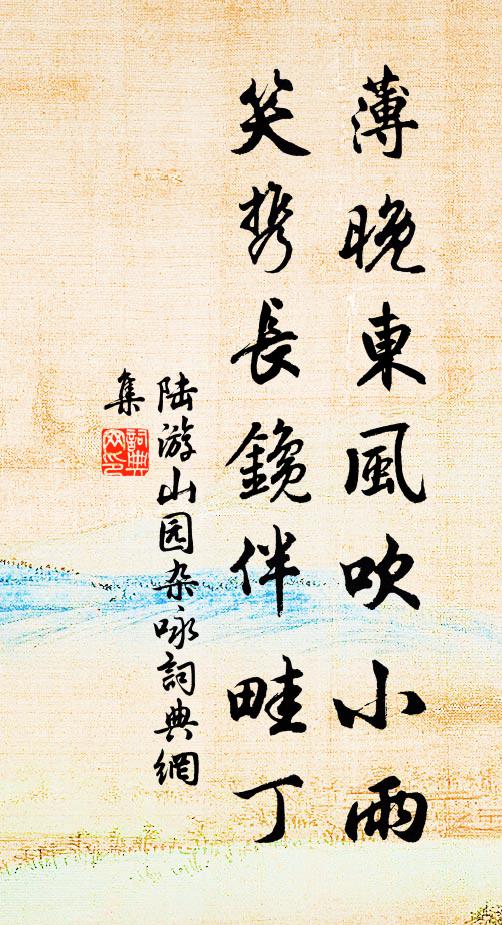 薄晚東風吹小雨
笑携長鑱伴畦丁
陆游山园杂咏詞典網
集
詞典網印